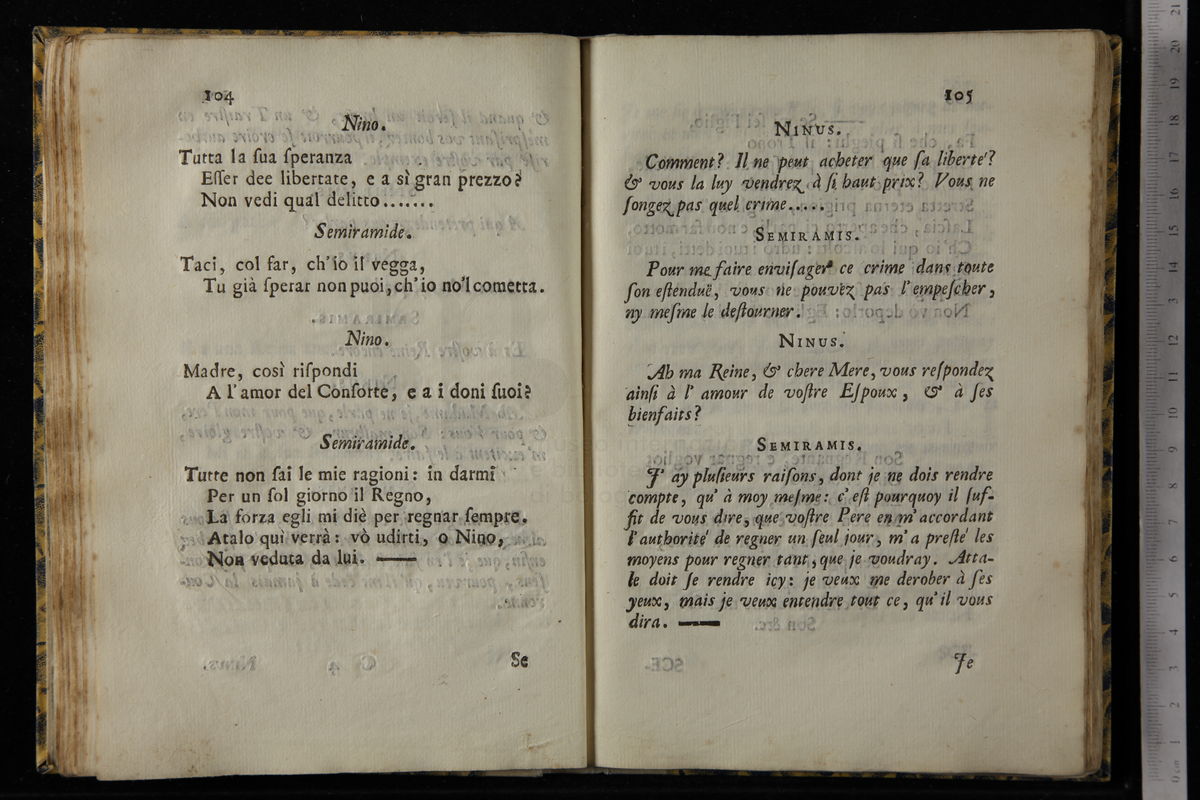 104
Nino.
Tutta la ſua ſperanza
Eſſer dee libertate, e a sì gran prezzo?
Non vedi qual delitto.......
Semiramide.
Taci, col far, ch'io il vegga,
Tu già ſperar non puoi, ch'io no'l cometta.
Nino.
Madre, così riſpondi
A l'amor del Conſorte, e a i doni ſuoi?
Semiramide.
Tutte non ſai le mie ragioni: in darmi
Per un ſol giorno il Regno,
La forza egli mi diè per regnar ſempre.
Atalo qui verrà: vò udirti, o Nino,
Non veduta da lui.
Se
105
NINUS.
Comment? Il ne peut acheter que ſa liberté?
& vous la luy vendrez à ſi haut prix? Vous ne
ſongez pas quel crime.....
SEMIRAMIS.
Pour me faire enviſager ce crime dans toute
ſon eſtenduë, vous ne pouvez pas l'empeſcher,
ny meſme le deſtourner.
NINUS.
Ah ma Reine, & chere Mere, vous reſpondez
ainſi à l' amour de voſtre Eſpoux, & à ſes
bienfaits?
SEMIRAMIS.
J' ay pluſieurs raiſons, dont je ne dois rendre
compte, qu' à moy meſme: c' eſt pourquoy il ſuf-
fit de vous dire, que voſtre Pere en m' accordant
l' authorité de regner un ſeul jour, m' a preſté les
moyens pour regner tant, que je voudray. Atta-
le doit ſe rendre icy: je veux me derober à ſes
yeux, mais je veux entendre tout ce, qu' il vous
dira.
Je